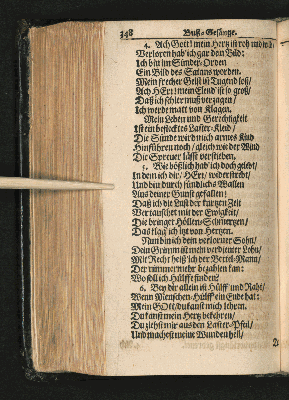 348 Buß-Gesänge.
4. Ach Gott! mein Hertz ist roh und wild/
Verloren hab' ich gar dein Bild:
Ich bin im Sünder-Orden
Ein Bild des Satans worden.
Mein frecher Geist ist Tugend loß/
Ach HErr! mein Elend ist so groß/
Daß ich schier muß verzagen/
Ich werde matt von Klagen.
Mein Leben und Gerechtigkeit
Ist ein beflecktes Laster-Kleid/
Die Sünde wird mich armes Kind
Hinführen noch/ gleich wie der Wind
Die Spreuer lässt verstieben.
5. Wie bößlich hab' ich doch gelebt/
In dem ich dir/ HErr/ widerstrebt/
Und bin durch sündlichs Wallen
Aus deiner Gunst gefallen:
Daß ich die Lust der kurtzen Zeit
Vertauschet mit der Ewigkeit/
Die bringet Höllen-Schmertzen/
Das klag' ich itzt von Hertzen.
Nun bin ich dein verlorner Sohn/
Dein Grimm ist mein verdienter Lohn/
Mit Recht heiß' ich der Bettel-Mann/
Der nimmermehr bezahlen kan:
Wo soll ich Hülffe finden?
6. Bey dir allein ist Hülff und Raht/
Wenn Menschen-Hülff ein Ende hat:
Mein GOtt/ du kanst mich lehren,
Du kanst mein Hertz bekehren/
Du ziehst mir aus den Laster-Pfeil/
Und machest meine Wunden heil/